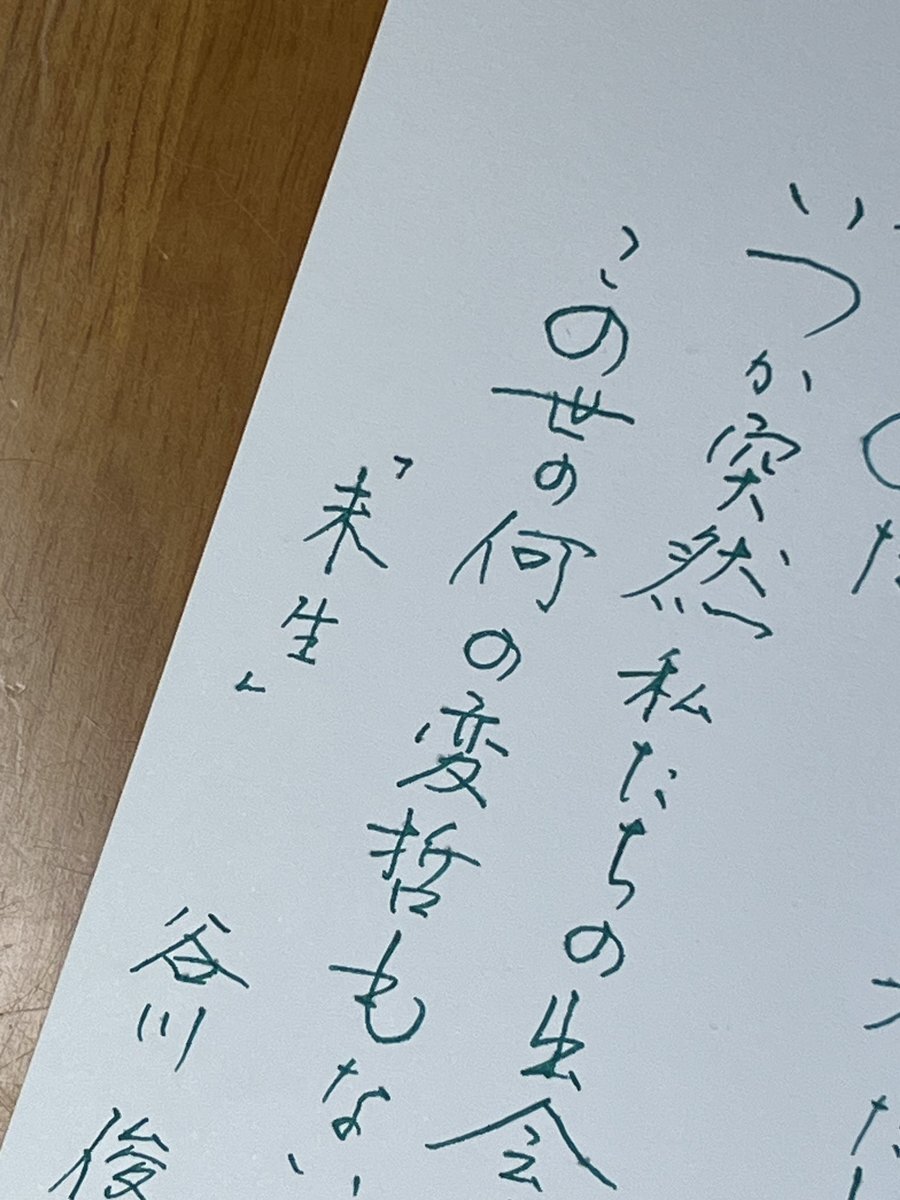 いつか突然私たちの出会
この世の何の変哲もない
「来生」
谷川俊